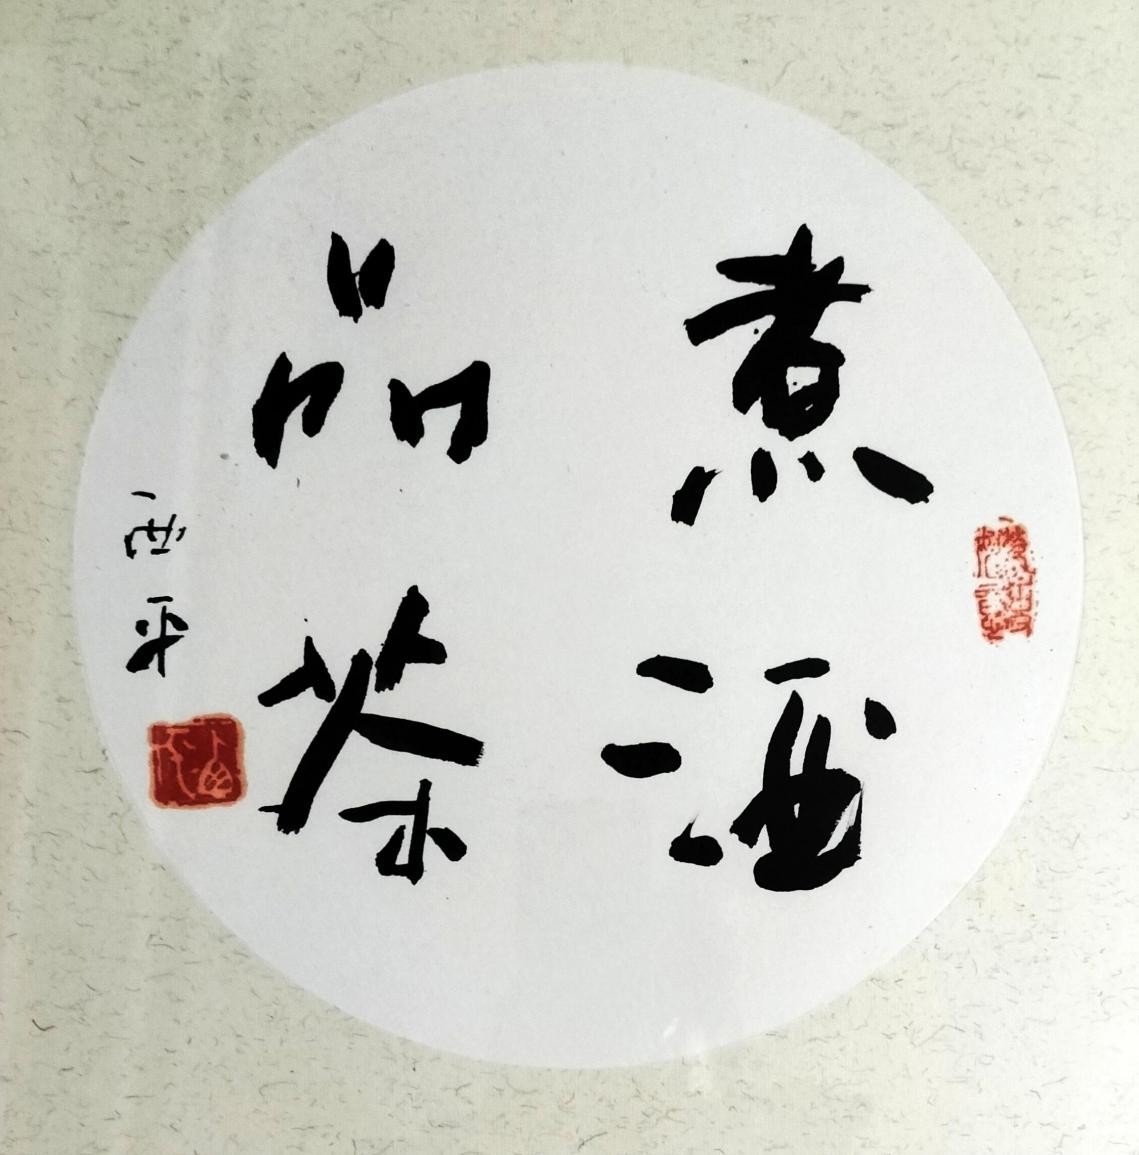 煮酒
品茶
西平